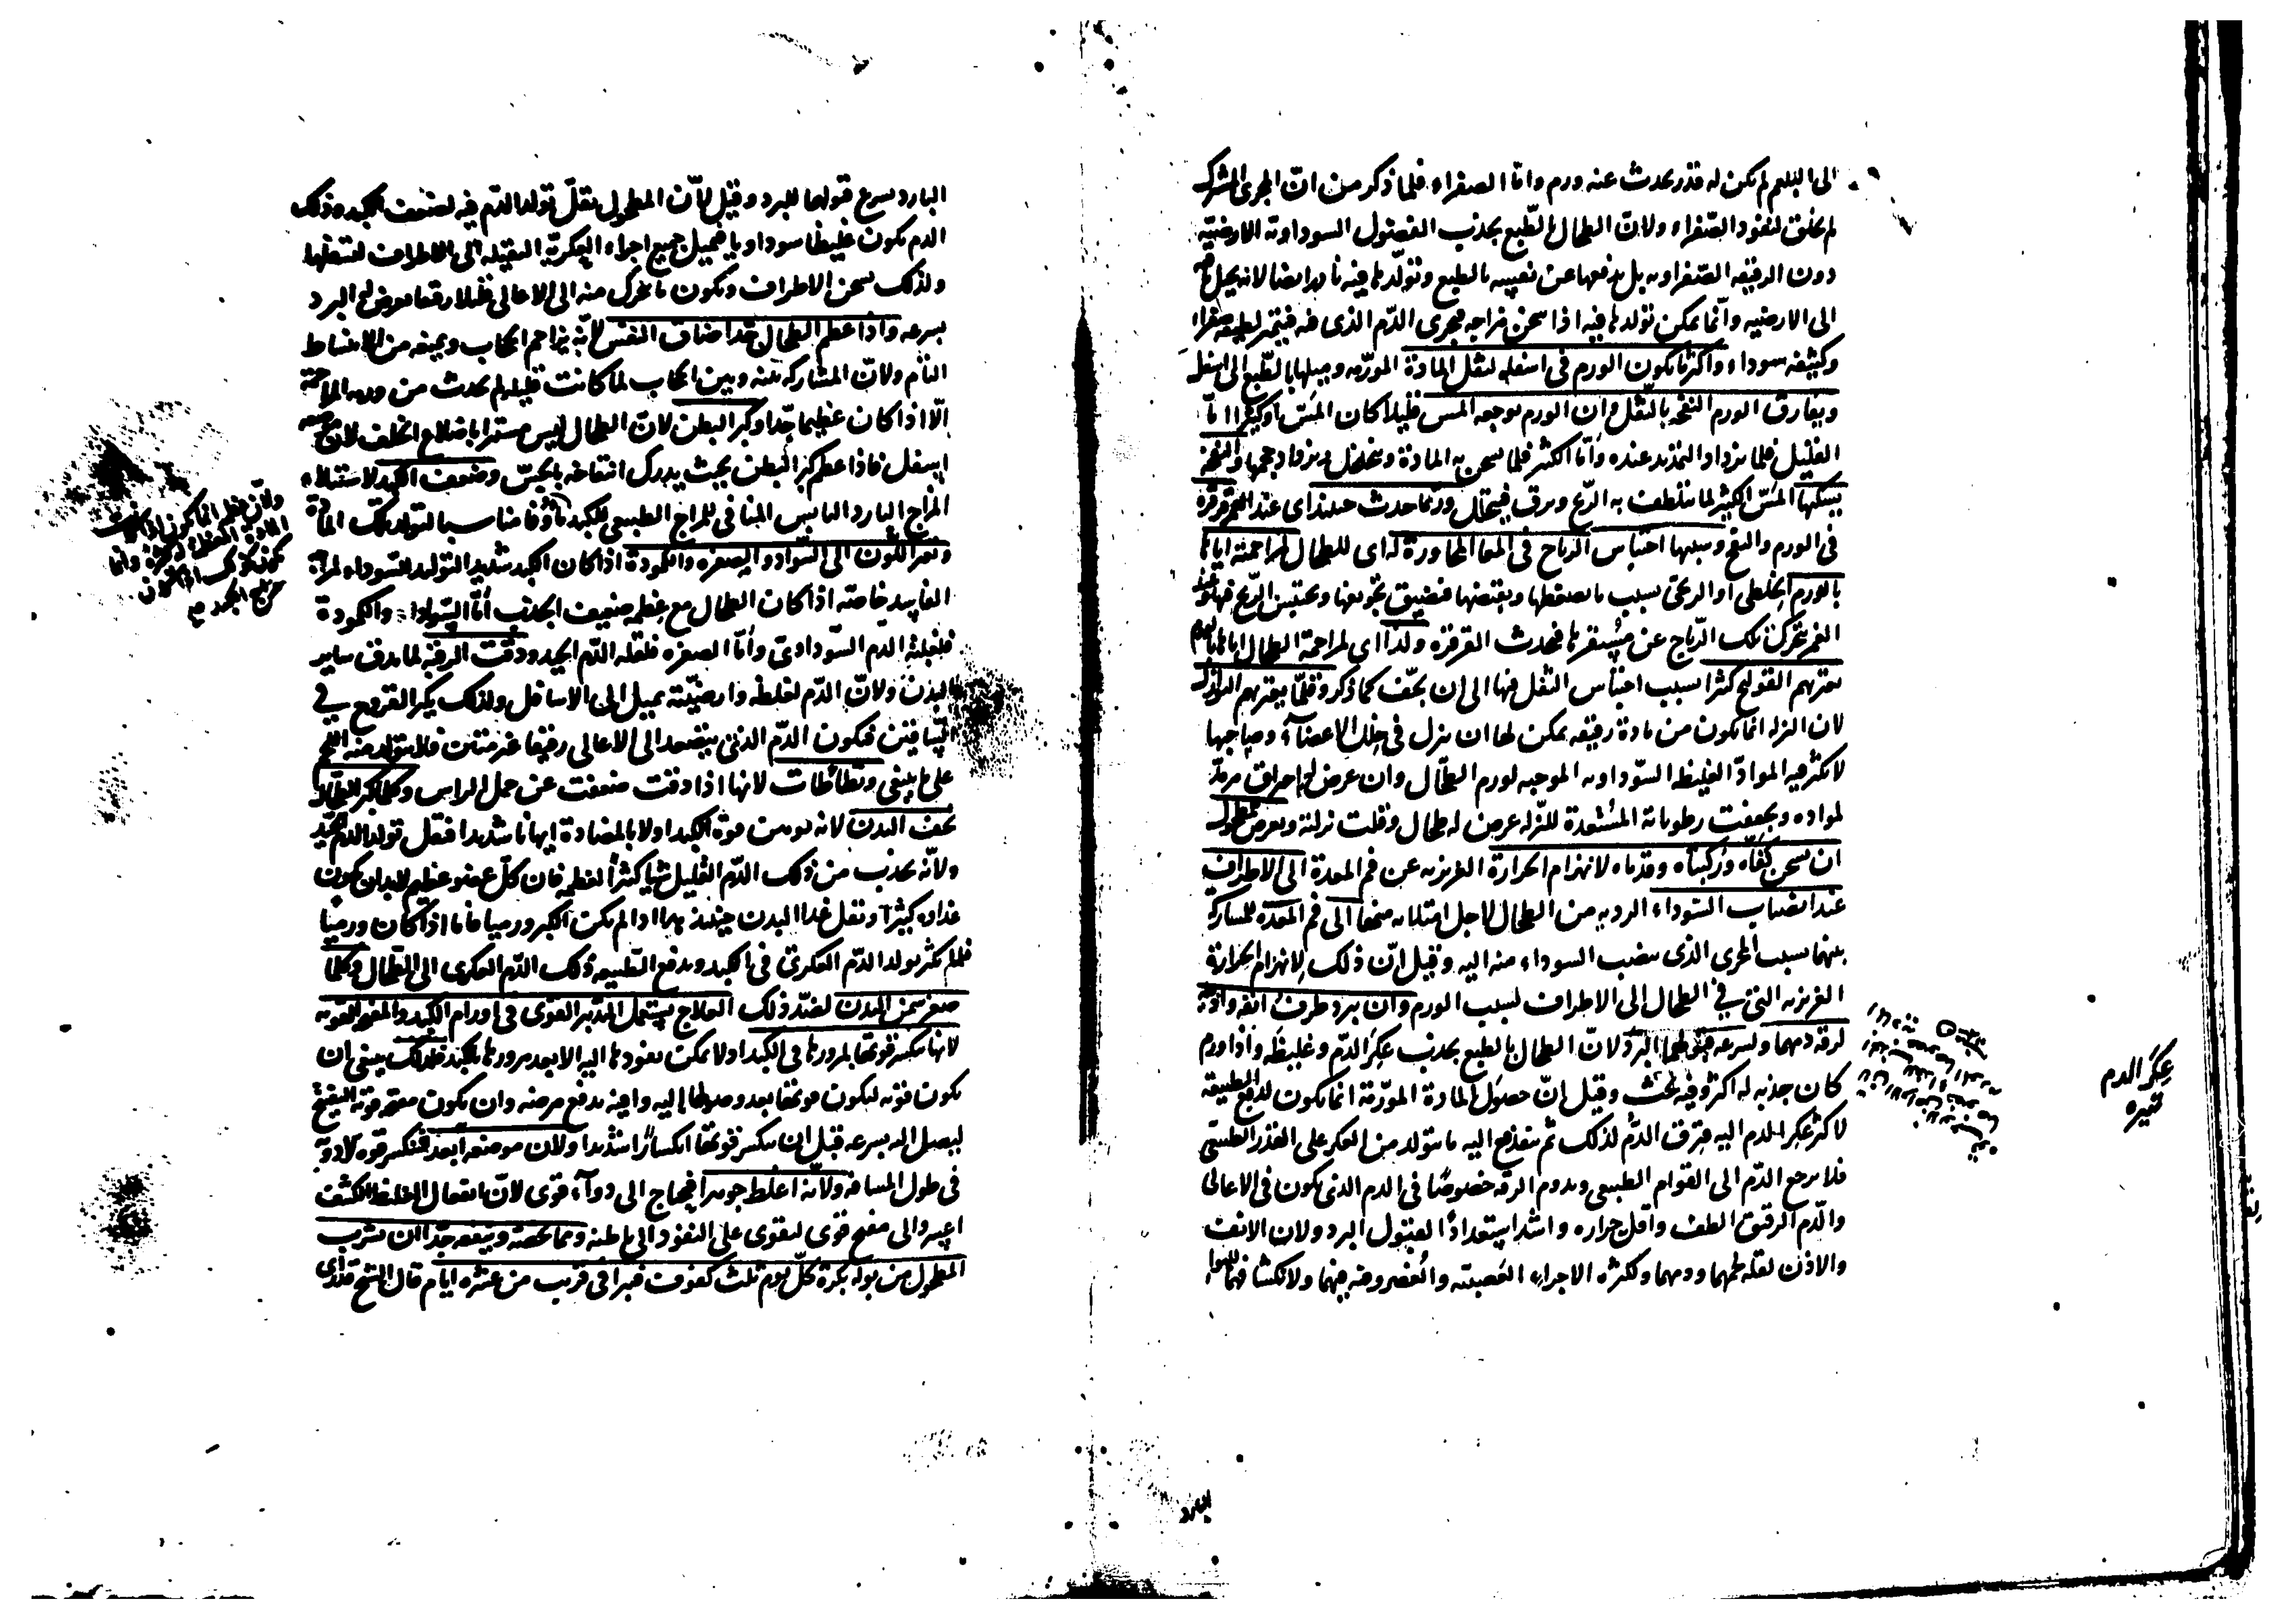 الى البلغم لم يكن له قدر يحدث عنه ورم واما الصفراء فلما ذكر من ان المجرى المشترك
لم يخلق لنفوذ الصفراء ولان الطحال بالطبع يجذب الفضول السوداوية الارضية
دون الرقيقة الصفراوية بل يدفعها عن نفسه بالطبع وتولدها فيه نادر ايضا لانه يحيلها
الى الارضية وانما يمكن تولدها فيه اذا سخن مزاجه فيحرق الدم الذى فيه فيتميز لطيفه صفراء
وكثيفه سوداء واكثر ما يكون الورم فى اسفله لثقل المادة المورمة وميلها بالطبع الى اسفل
ويفارق الورم النفخة بالثقل وان الورم يوجعه المس قليلا كان المس او كثيرا اما
القليل فلما يزداد التمدد عنده واما الكثير فلما يسخن به المادة وتخلخل ويزداد حجمها والنفخة
يسكنها المس الكثير لما يتلطف به الريح ويرق فيتحلل وربما حدث حينئذ اى عند الغمز قرقرة
فى الورم والنفخ وسببها احتباس الرياح فى المعا المجاورة له اى للطحال لمزاحمته اياها
بالورم الخلطى او الريحى بسبب ما يضغطها ويقبضها فيضيق تجويفها ويحتبس الريح فيها وعند
الغمز يتحرك تلك الرياح عن مستقرها فيحدث القرقرة ولذا اى لمزاحمة الطحال اياها بالورم
يعتريهم القولنج كثيرا بسبب احتباس الثفل فيها الى ان يجف كما ذكر وقلما يعتريهم النوازل
لان النزلة انما يكون من مادة رقيقة يمكن لها ان ينزل فى خلل الاعضاء وصاحبها
لا يكثر فيه المواد الغليظة السوداوية الموجبة لورم الطحال وان عرض له احراق مرمد
لمواده ويجففت رطوباته المستعدة للنزلة عرض له طحال وقلت نزلته ويعرض للمطحول
ان يسخن كفاه وركبتاه وقدماه لانهزام الحرارة الغريزية عن فم المعدة الى الاطراف
عند انصباب السوداء الردية من الطحال لاجل امتلائه منها الى فم المعدة للمشاركة
بينهما بسبب المجرى الذى ينصب السوداء منه اليه وقيل ان ذلك لانهزام الحرارة
الغريزية التى فى الطحال الى الاطراف لسبب الورم وان يبرد طرف انفه واذنه
لرقة دمهما ولسرعة قبولهما البرد لان الطحال بالطبع يجذب عكر الدم وغليظه واذا ورم
كان جذبه له اكثر وفيه بحث وقيل ان حصول المادة المورمة انما يكون لدفع الطبيعة
لاكثر عكر الدم اليه فيرق الدم لذلك ثم يندفع اليه ما يتولد من العكر على القدر الطبيعى
فلا يرجع الدم الى القوام الطبيعى ويدوم الرقة خصوصا فى الدم الذى يكون فى الاعالى
والدم الرقيق الطف واقل حرارة واشد استعدادا لقبول البرد ولان الانف
والاذن لقلة لحمهما ودمهما ولكثرة الاجزاء العصبية والغضروفية فيهما ولانكشافهما للهواء
عكر الدم
تيره
البارد
البارد يسرع قبولهما للبرد وقيل لان المطحول يقل تولد الدم فيه لضعف الكبد وذلك
الدم يكون غليظا سوداويا فيميل جميع اجزاء العكرية الثقيلة الى الاطراف لثقلها
ولذلك يسخن الاطراف ويكون ما يتحرك منه الى الاعالى قليلا رقيقا فيعرض له البرد
بسرعة واذا عظم الطحال جدا ضاق النفس لانه يزاحم الحجاب ويمنعه من الانبساط
التام ولان المشاركة بينه وبين الحجاب لما كانت قليلة لم يحدث من ورمه المزاحمة
الا اذا كان عظيما جدا وكبر البطن لان الطحال ليس مستترا باضلاع الخلف لان موضعه
اسفل فاذا عظم كبر البطن بحيث يدرك انتفاخه بالحس وضعف الكبد لاستيلاء
المزاج البارد اليابس المنافى للمزاج الطبيعى للكبد فاوفا مناسبا لتولد تلك المادة
وتغير اللون الى السواد والصفرة والكمودة اذا كان الكبد شديد التوليد للسوداء لمزاجه
الفاسد خاصة اذا كان الطحال مع عظمه ضعيف الجذب اما السواد والكمودة
فلغلبة الدم السوداوى واما الصفرة فلقلة الدم الجيد ودقت الرقبة لما يدق ساير
البدن ولان الدم لغلظه وارضيته يميل الى الاسافل ولذلك يكثر القروح فى
الساقين فيكون الدم الذى يتصعد الى الاعالى رقيقا غير متين فلا يتولد منه اللحم
على ما ينبغى وتطأطأت لانها اذا دقت ضعفت عن حمل الراس وكلما كبر الطحال
نحف البدن لانه يوهن قوة الكبد اولا بالمضادة ايهانا شديدا فيقل تولد الدم الجيد
ولانه يجذب من ذلك الدم القليل شيا كثيرا لعظمه فان كل عضو عظيم لابد ان يكون
غذاوه كثيرا ويقل غذا البدن حينئذ هذا اذا لم يكن الكبر ورميا فاما اذا كان ورميا
فلما يكثر تولد الدم العكرى فى الكبد ويدفع الطبيعة ذلك الدم العكرى الى الطحال وكلما
صغر سمن البدن لضد ذلك العلاج يستعمل التدبير القوى فى اورام الكبد والمفتح القوية
لانها ينكسر قوتها بمرورها فى الكبد اذ لا يمكن نفوذها اليه الا بعد مرورها بالكبد فلذلك ينبغى ان
يكون قوية ليكون قوتها بعد وصولها اليه وافية بدفع مرضه وان يكون معه قوة التنفيذ
ليصل اليه بسرعة قبل ان ينكسر قوتها انكسارا شديدا ولان موضعه ابعد فينكسر قوة الادوية
فى طول المسافة ولانه اغلظ جوهرا فيحتاج الى دواء قوى لان انفعال الغليظ الكثيف
اعسر والى مفتح قوى ليقوى على النفوذ الى باطنه ومما يخصه وينفعه جدا ان يشرب
المطحول من بوله بكرة كل يوم ثلث كفوف فيبرا فى قريب من عشرة ايام قال الشيخ